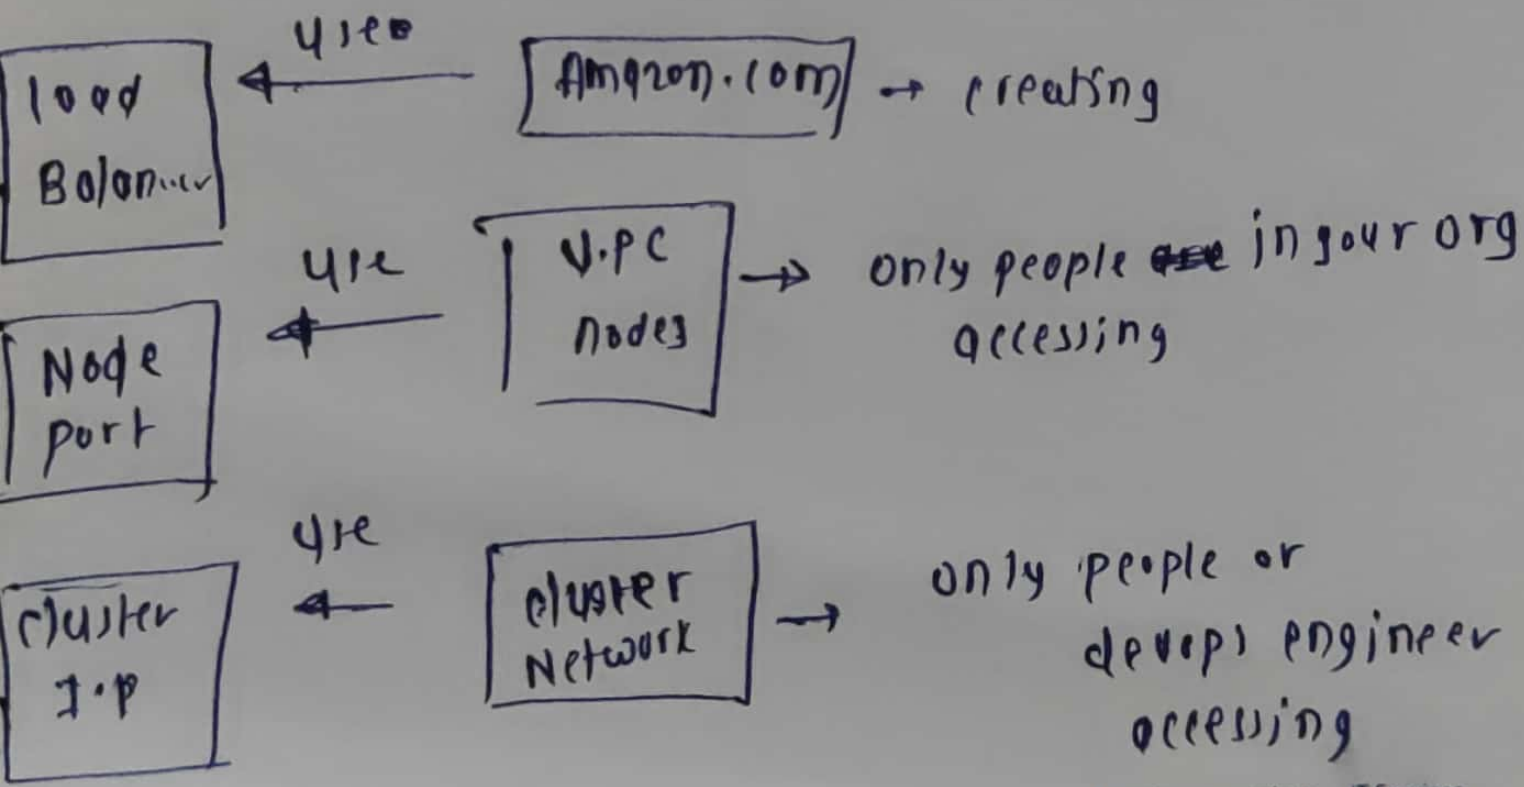 load
Balancer
use
Amazon.com → creating
Node
port
use
V.PC
nodes
→ only people in your org
accessing
cluster
I.P
use
cluster
Network
→ only people or
devops engineer
accessing